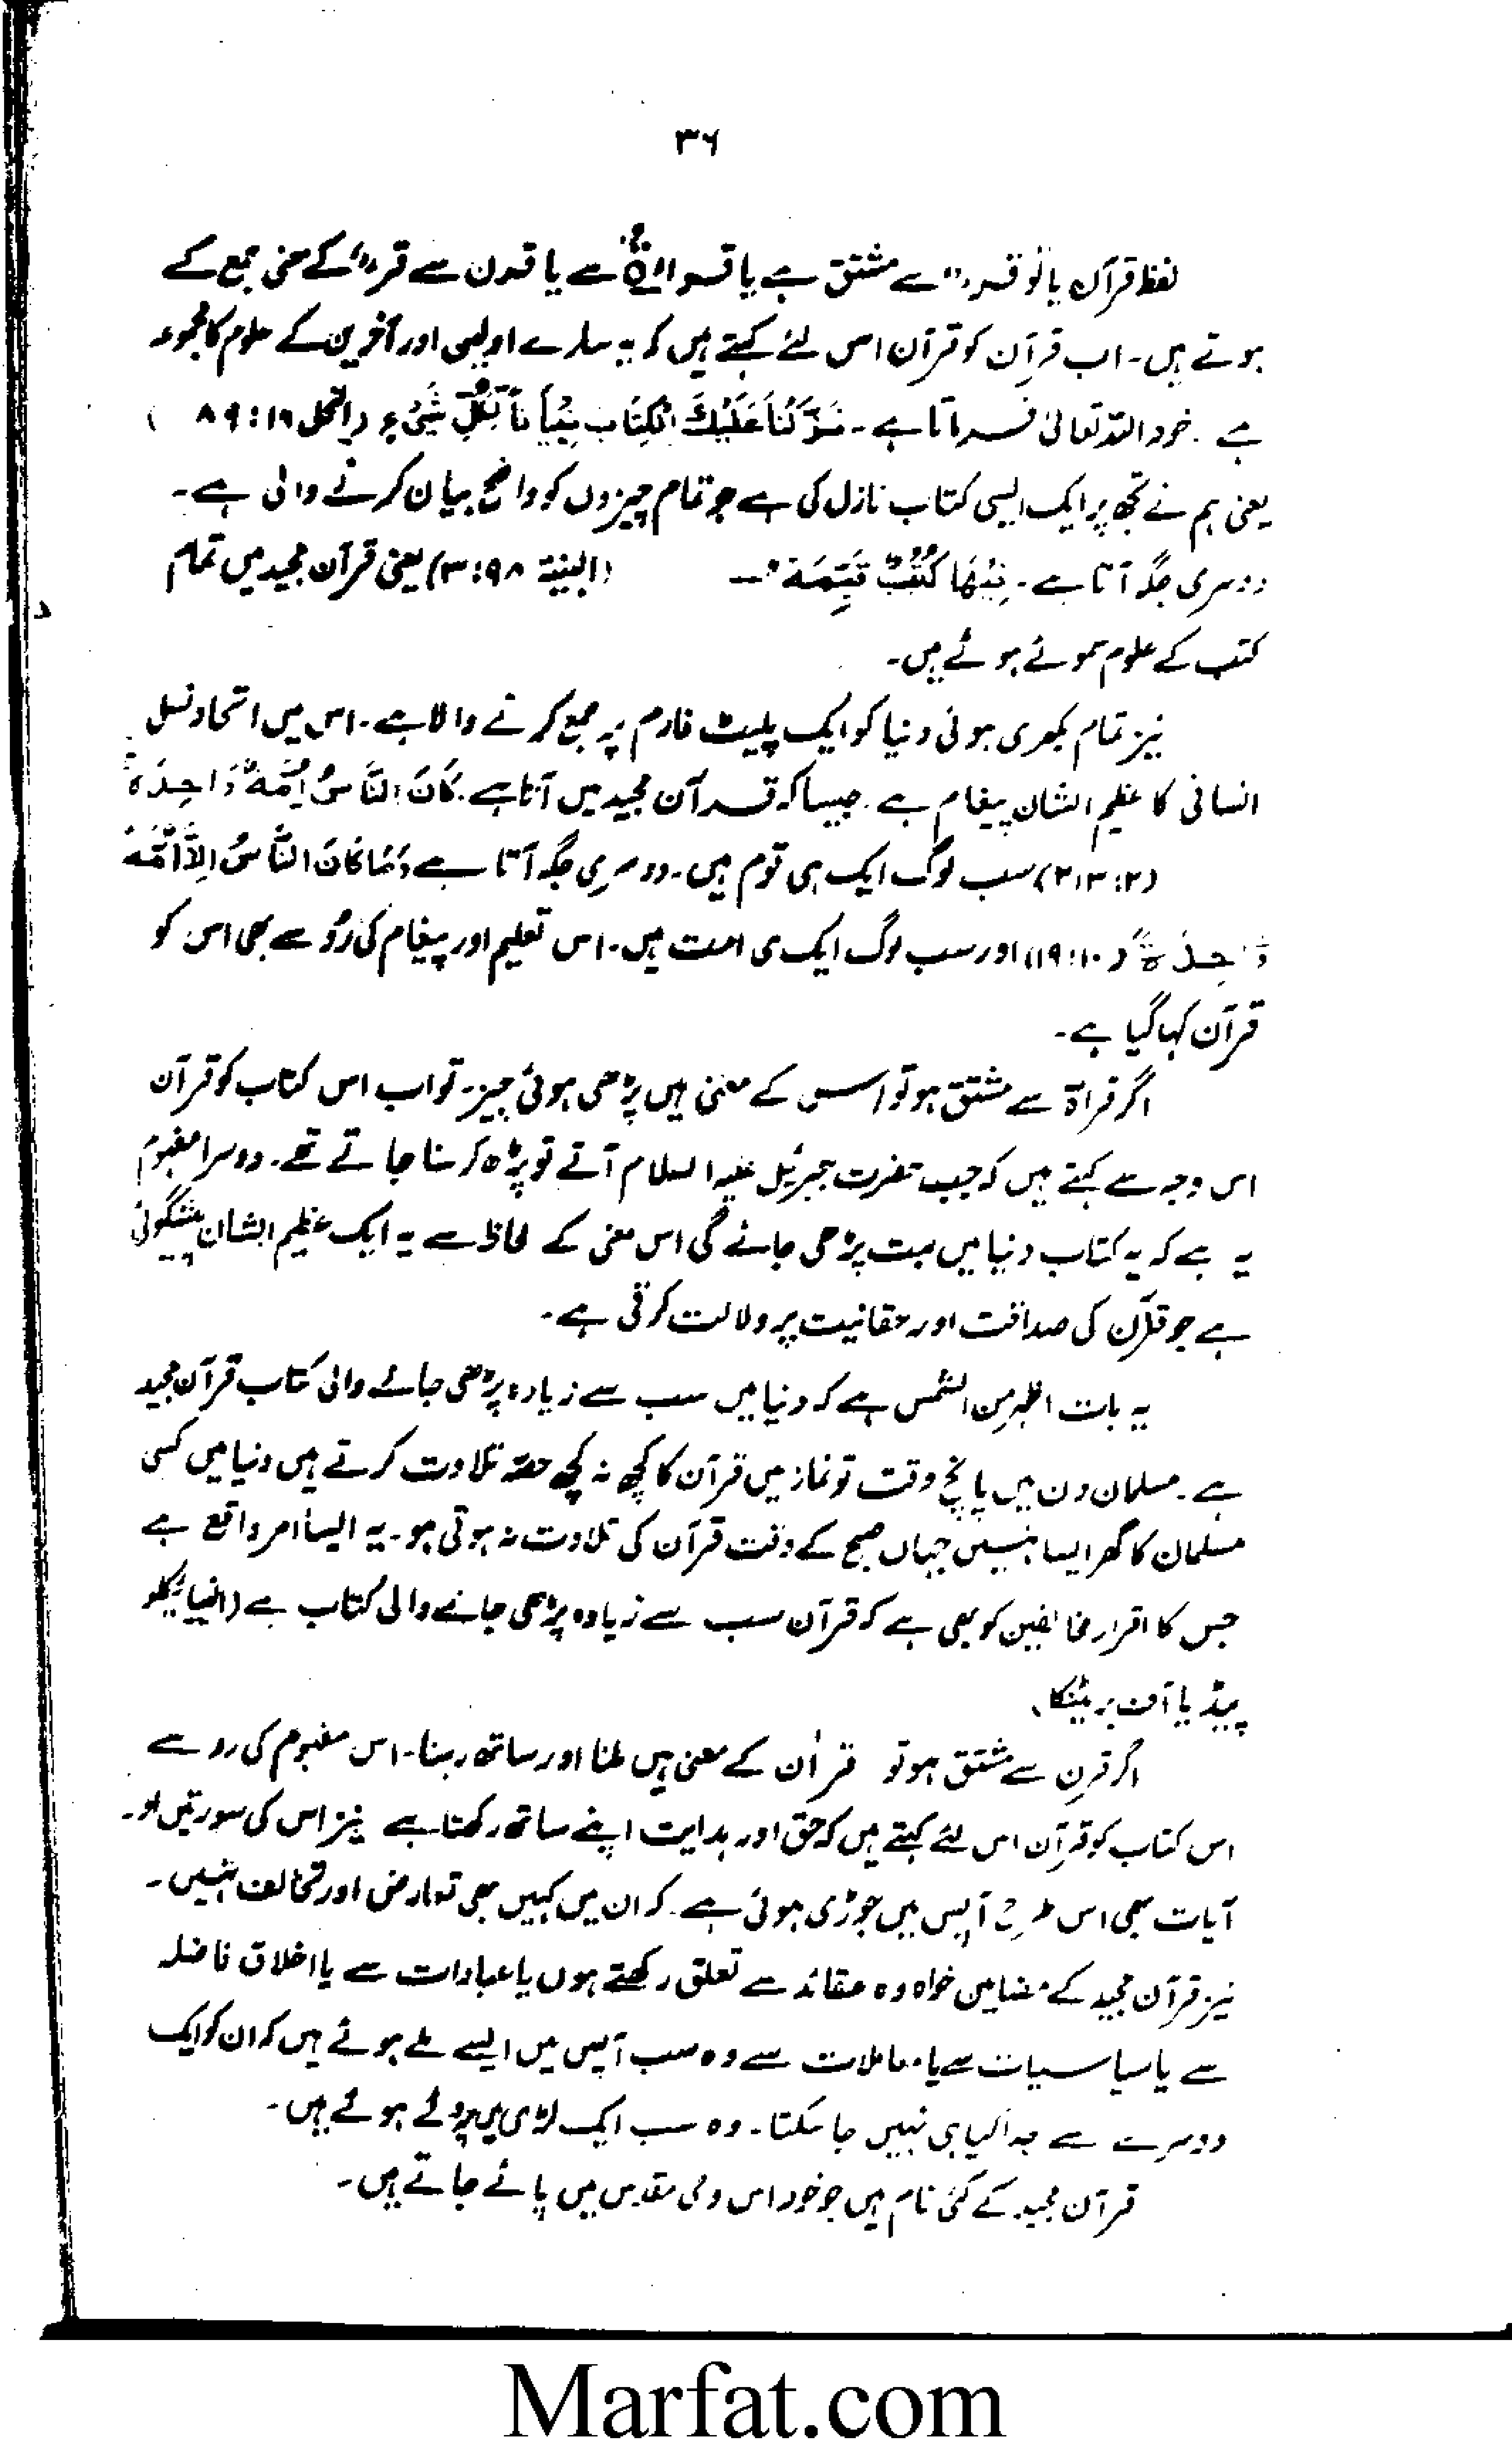 ۳۶
لفظ قرآن یا تو قرء سے مشتق ہے یا قراءۃ سے یا قرن سے قرء کے معنی جمع کے
ہوتے ہیں۔ اب قرآن کو قرآن اس لئے کہتے ہیں کہ یہ سارے اولین اور آخرین کے علوم کا مجموعہ
ہے ۔ خود اللہ تعالیٰ فرماتا ہے ۔ نَزَّلْنَا عَلَيْكَ الْكِتَابَ تِبْيَاناً لِّكُلِّ شَيْءٍ (النحل ۱۶ : ۸۹ )
یعنی ہم نے تجھ پر ایک ایسی کتاب نازل کی ہے جو تمام چیزوں کو واضح بیان کرنے والی ہے۔
دوسری جگہ آتا ہے ۔ فِيْهَا كُتُبٌ قَيِّمَةٌ (البینۃ ۹۸ : ۳) یعنی قرآن مجید میں تمام
کتب کے علوم سموئے ہوئے ہیں۔
نیز تمام بکھری ہوئی دنیا کو ایک پلیٹ فارم پر جمع کرنے والا ہے ۔ اس میں اتحاد نسل
انسانی کا عظیم الشان پیغام ہے ۔ جیسا کہ قرآن مجید میں آتا ہے ۔ كَانَ النَّاسُ اُمَّةً وَّاحِدَةً
(۲ : ۲۱۳) سب لوگ ایک ہی قوم ہیں ۔ دوسری جگہ آتا ہے وَمَا كَانَ النَّاسُ اِلَّا اُمَّةً
وَّاحِدَةً (۱۰ : ۱۹) اور سب لوگ ایک ہی امت ہیں ۔ اس تعلیم اور پیغام کی رُو سے بھی اس کو
قرآن کہا گیا ہے ۔
اگر قراۃ سے مشتق ہو تو اس کے معنی ہیں پڑھی ہوئی چیز ۔ تو اب اس کتاب کو قرآن
اس وجہ سے کہتے ہیں کہ جب حضرت جبرئیل علیہ السلام آتے تو پڑھ کر سنا جاتے تھے ۔ دوسرا مفہوم
یہ ہے کہ یہ کتاب دنیا میں بہت پڑھی جائے گی اس معنی کے لحاظ سے یہ ایک عظیم الشان پیشگوئی
ہے جو قرآن کی صداقت اور حقانیت پر دلالت کرتی ہے ۔
یہ بات اظہر من الشمس ہے کہ دنیا میں سب سے زیادہ پڑھی جانے والی کتاب قرآن مجید
ہے ۔ مسلمان دن میں پانچ وقت تو نماز میں قرآن کا کچھ نہ کچھ حصہ تلاوت کرتے ہیں دنیا میں کسی
مسلمان کا گھر ایسا نہیں جہاں صبح کے وقت قرآن کی تلاوت نہ ہوتی ہو ۔ یہ ایسا امر واقع ہے
جس کا اقرار مخالفین کو بھی ہے کہ قرآن سب سے زیادہ پڑھی جانے والی کتاب ہے (انسائیکلو
پیڈیا آف برٹینکا)
اگر قرن سے مشتق ہو تو قرآن کے معنی ہیں ملنا اور ساتھ رہنا ۔ اس مفہوم کی رو سے
اس کتاب کو قرآن اس لئے کہتے ہیں کہ حق اور ہدایت اپنے ساتھ رکھتا ہے نیز اس کی سورتیں اور
آیات بھی اس طرح آپس میں جوڑی ہوئی ہے ۔ کہ ان میں کہیں بھی تعارض اور تخالف نہیں ۔
نیز قرآن مجید کے مضامین خواہ وہ عقائد سے تعلق رکھتے ہوں یا عبادات سے یا اخلاق فاضلہ
سے یا سیاسیات سے یا معاملات سے وہ سب آپس میں ایسے ملے ہوئے ہیں کہ ان کو ایک
دوسرے سے جدا کیا ہی نہیں جا سکتا ۔ وہ سب ایک لڑی میں پروئے ہوئے ہیں ۔
قرآن مجید کے کئی نام ہیں جو خود اس وحی مقدس میں پائے جاتے ہیں ۔
Marfat.com